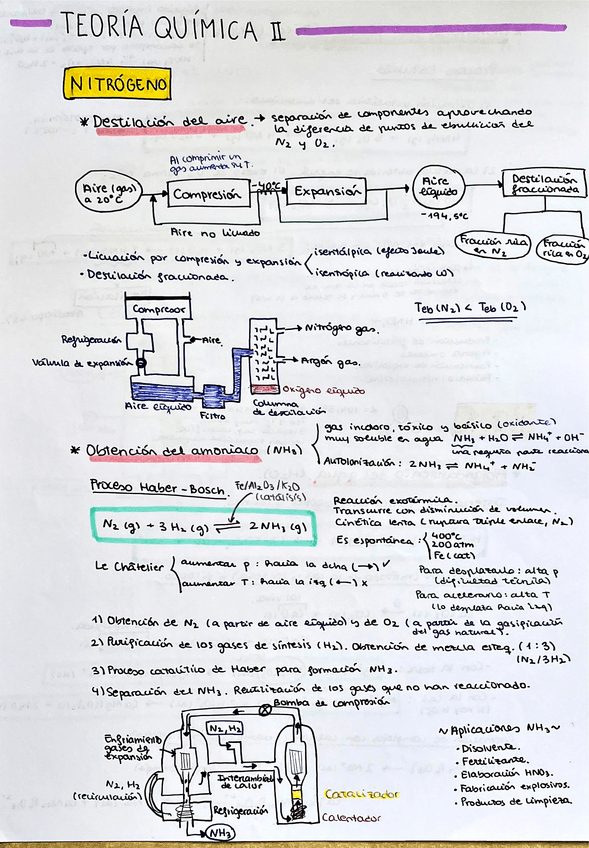 TEORÍA QUÍMICA II
NITRÓGENO
* Destilación del aire → separación de componentes aprovechando
la diferencia de puntos de ebullición del
N₂ y O₂.
Al comprimir un
gas aumenta su T.
Aire (gas)
a 20°C
Compresión
-40°C
Expansión
Aire
líquido
-194,5°C
Destilación
fraccionada
Aire no licuado
Fracción rica
en N₂
Fracción
rica en O₂
· Licuación por compresión y expansión
isentálpica (efecto Joule)
isentrópica (realizando W)
· Destilación fraccionada.
Teb (N₂) < Teb (O₂)
Compresor
Refrigeración
Aire
Válvula de expansión
Aire líquido
Filtro
Nitrógeno gas.
Argón gas.
Oxígeno líquido
Columna
de destilación
* Obtención del amoniaco (NH₃)
gas incoloro, tóxico y básico (oxidante)
muy soluble en agua NH₃ + H₂O ⇌ NH₄⁺ + OH⁻
una pequeña parte reacciona
Autoionización: 2NH₃ ⇌ NH₄⁺ + NH₂⁻
Proceso Haber-Bosch.
Fe/Al₂O₃/K₂O
(catálisis)
N₂ (g) + 3H₂ (g) ⇌ 2NH₃ (g)
Reacción exotérmica.
Transcurre con disminución de volumen.
Cinética lenta (ruptura triple enlace, N₂)
Es espontánea:
400°C
200 atm
Fe (cat)
Le Châtelier
aumentar p: hacia la dcha (→) ✓
aumentar T: hacia la izq (←) x
Para desplazarlo: alta p
(dificultad técnica)
Para acelerarlo: alta T
(lo desplaza hacia izq)
1) Obtención de N₂ (a partir de aire líquido) y de O₂ (a partir de la gasificación
del gas natural).
2) Purificación de los gases de síntesis (H₂). Obtención de mezcla esteq. (1:3)
(N₂/3H₂)
3) Proceso catalítico de Haber para formación NH₃.
4) Separación del NH₃. Reutilización de los gases que no han reaccionado.
Bomba de compresión
N₂, H₂
Enfriamiento
gases de
expansión
Intercambiador
de calor
N₂, H₂
(recirculación)
Refrigeración
NH₃
Catalizador
Calentador
~ Aplicaciones NH₃ ~
· Disolvente.
· Fertilizante.
· Elaboración HNO₃.
· Fabricación explosivos.
· Productos de limpieza.